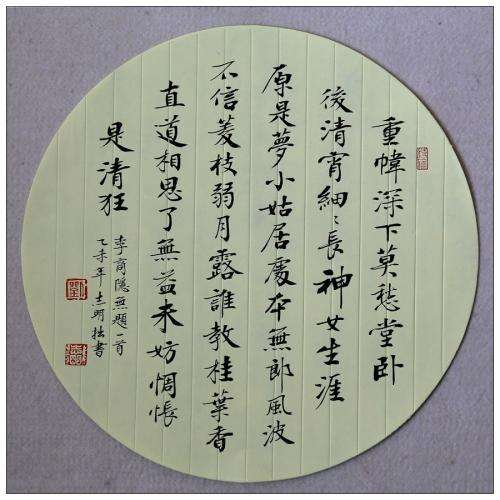 重幃深下莫愁堂卧
後清宵細〻長神女生涯
原是夢小姑居處本無郎風波
不信菱枝弱月露誰教桂葉香
直道相思了無益未妨惆悵
是清狂
李商隱無題一首
乙未年志明拙書